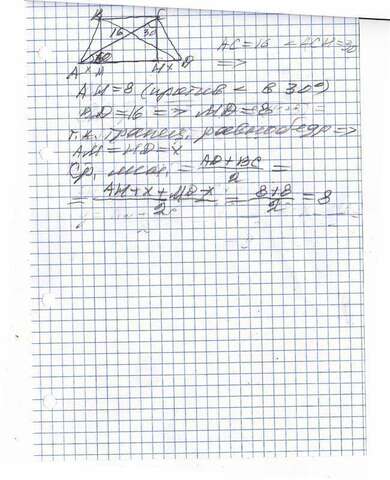 B C
16 30
A x M H x D
60
AC=16 <ACH=30
=>
AH=8 (против < в 30°)
BD=16 => MD=8
т.к. трапец. равнобедр =>
AM=HD=x
Ср. лин. = AD+BC / 2 =
= AH+x+MD-x / 2 = 8+8 / 2 = 8